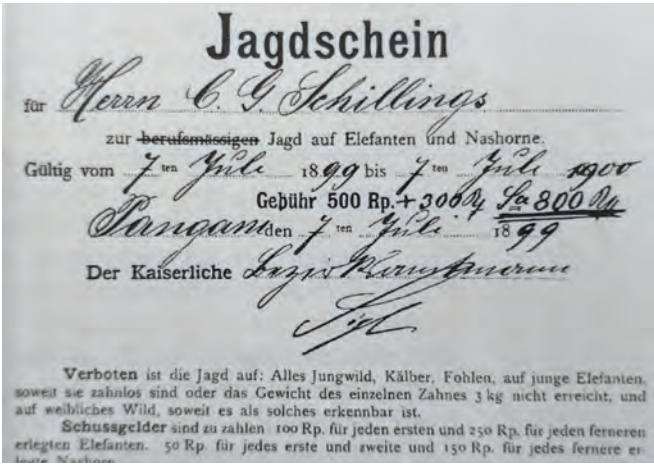 Jagdschein
für Herrn C. G. Schillings
zur berufsmässigen Jagd auf Elefanten und Nashorne.
Gültig vom 7 ten Juli 1899 bis 7 ten Juli 1900
Gebühr 500 Rp. + 300 Rp Sa 800 Rp
Pangani den 7 ten Juli 1899
Der Kaiserliche Bezirksamtmann
Sigl
Verboten ist die Jagd auf: Alles Jungwild, Kälber, Fohlen, auf junge Elefanten,
soweit sie zahnlos sind oder das Gewicht des einzelnen Zahnes 3 kg nicht erreicht, und
auf weibliches Wild, soweit es als solches erkennbar ist.
Schussgelder sind zu zahlen 100 Rp. für jeden ersten und 250 Rp. für jeden ferneren
erlegten Elefanten. 50 Rp. für jedes erste und zweite und 150 Rp. für jedes fernere er-
legte Nashorn.